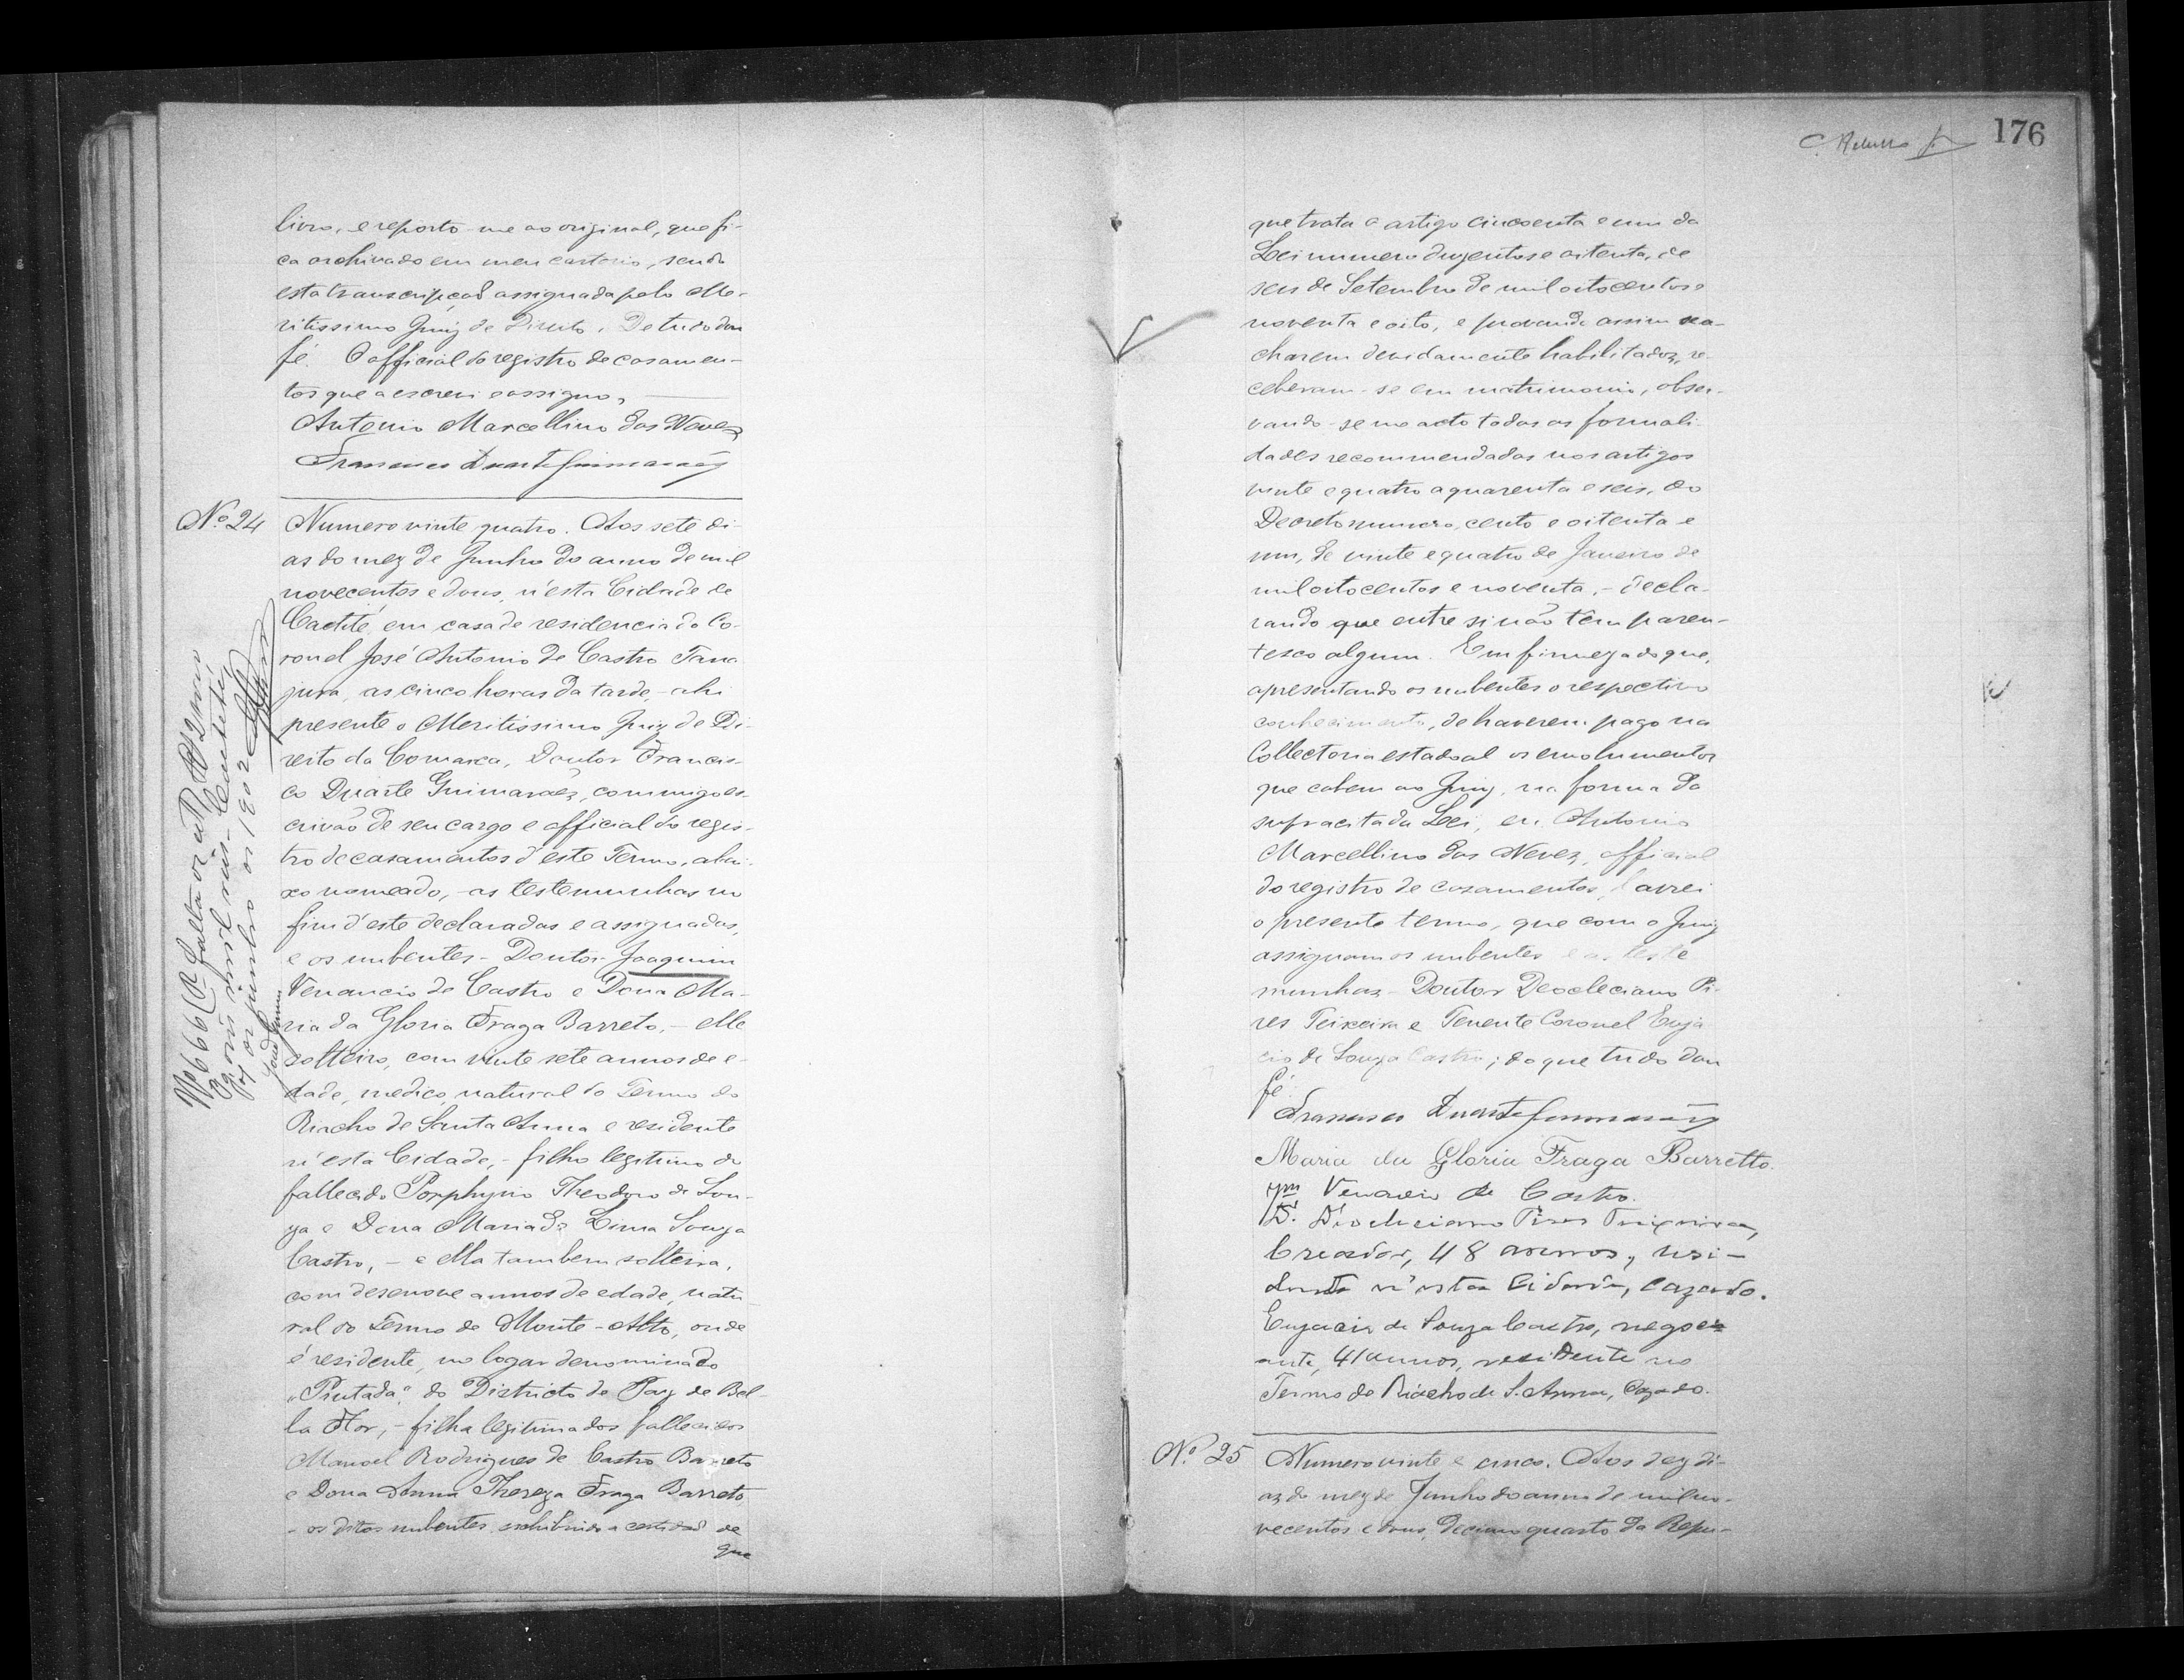 livro, e reporto-me ao original, que fi-
ca archivado em meu cartorio, sendo
esta transcripção assignada pelo Me-
ritissimo Juiz de Direito. De tudo dou
fé. O official do registro de casamen-
tos que a escrevi e assigno,
Antonio Marcellino das Neves
Francisco Duarte Guimarães
Nº 24
Numero vinte quatro. Aos sete di-
as do mez de Junho do anno de mil
novecentos e dous, n'esta Cidade de
Caetité, em casa de residencia do Co-
ronel José Antonio de Castro Tana-
jura, as cinco horas da tarde, - ahi
presente o Meritissimo Juiz de Di-
reito da Comarca, Doutor Francis-
co Duarte Guimarães, commigo es-
crivão de seu cargo e official do regis-
tro de casamentos d'este Termo, abai-
xo nomeado, - as testemunhas no
fim d'este declaradas e assignadas,
e os nubentes - Doutor Joaquim
Venancio de Castro e Dona Ma-
ria da Gloria Fraga Barreto, - elle
solteiro, com vinte sete annos de e-
dade, medico, natural do Termo do
Riacho de Santa Anna e residente
n'esta Cidade, - filho legitimo do
fallecido Porphyrio Theodoro de Sou-
za e Dona Maria de Lima Souza
Castro, - e ella tambem solteira,
com desenove annos de edade, natu-
ral do Termo de Monte-Alto, onde
é residente, no logar denominado
"Pintada" do Districto de Paz de Bel-
la Flor, - filha legitima dos fallecidos
Manoel Rodrigues de Castro Barreto
e Dona Anna Thereza Fraga Barreto
- os ditos nubentes, exhibindo a certidão de
que
Nº 666 Rs falta
3 mil reis - Caeteté,
7 de junho de 1902
176
que trata o artigo cincoenta e um da
Lei numero duzentos e oitenta, de
seis de Setembro de mil oitocentos e
noventa e oito, e provando assim se a-
charem devidamente habilitados, re-
ceberam-se em matrimonio, obser-
vando-se no acto todas as formali-
dades recommendadas nos artigos
vinte e quatro a quarenta e seis, do
Decreto numero, cento e oitenta e
um, de vinte e quatro de Janeiro de
mil oitocentos e noventa, - decla-
rando que entre si não têm paren-
tesco algum. Em firmeza do que,
apresentando os nubentes o respectivo
conhecimento, de haverem pago na
Collectoria estadoal os emolumentos
que cabem ao Juiz, na forma da
supracitada Lei, eu Antonio
Marcellino das Neves, official
do registro de casamentos, lavrei
o presente termo, que com o Juiz
assignam os nubentes e as teste
munhas - Doutor Deocleciano Pi-
res Teixeira e Tenente Coronel Enja
cio de Souza Castro; do que tudo dou
fé.
Francisco Duarte Guimarães
Maria da Gloria Fraga Barretto.
Jm Venancio de Castro.
Dr. Diocleciano Pires Teixeira,
Creador, 48 annos, resi-
dente n'esta Cidade, cazado.
Enjacio de Souza Castro, negoci-
ante, 41 annos, residente no
Termo de Riacho de S. Anna, Cazado.
Nº 25
Numero vinte e cinco. Aos dez di-
as do mez de Junho do anno de mil no-
vecentos e dous, decimo quarto da Repu-